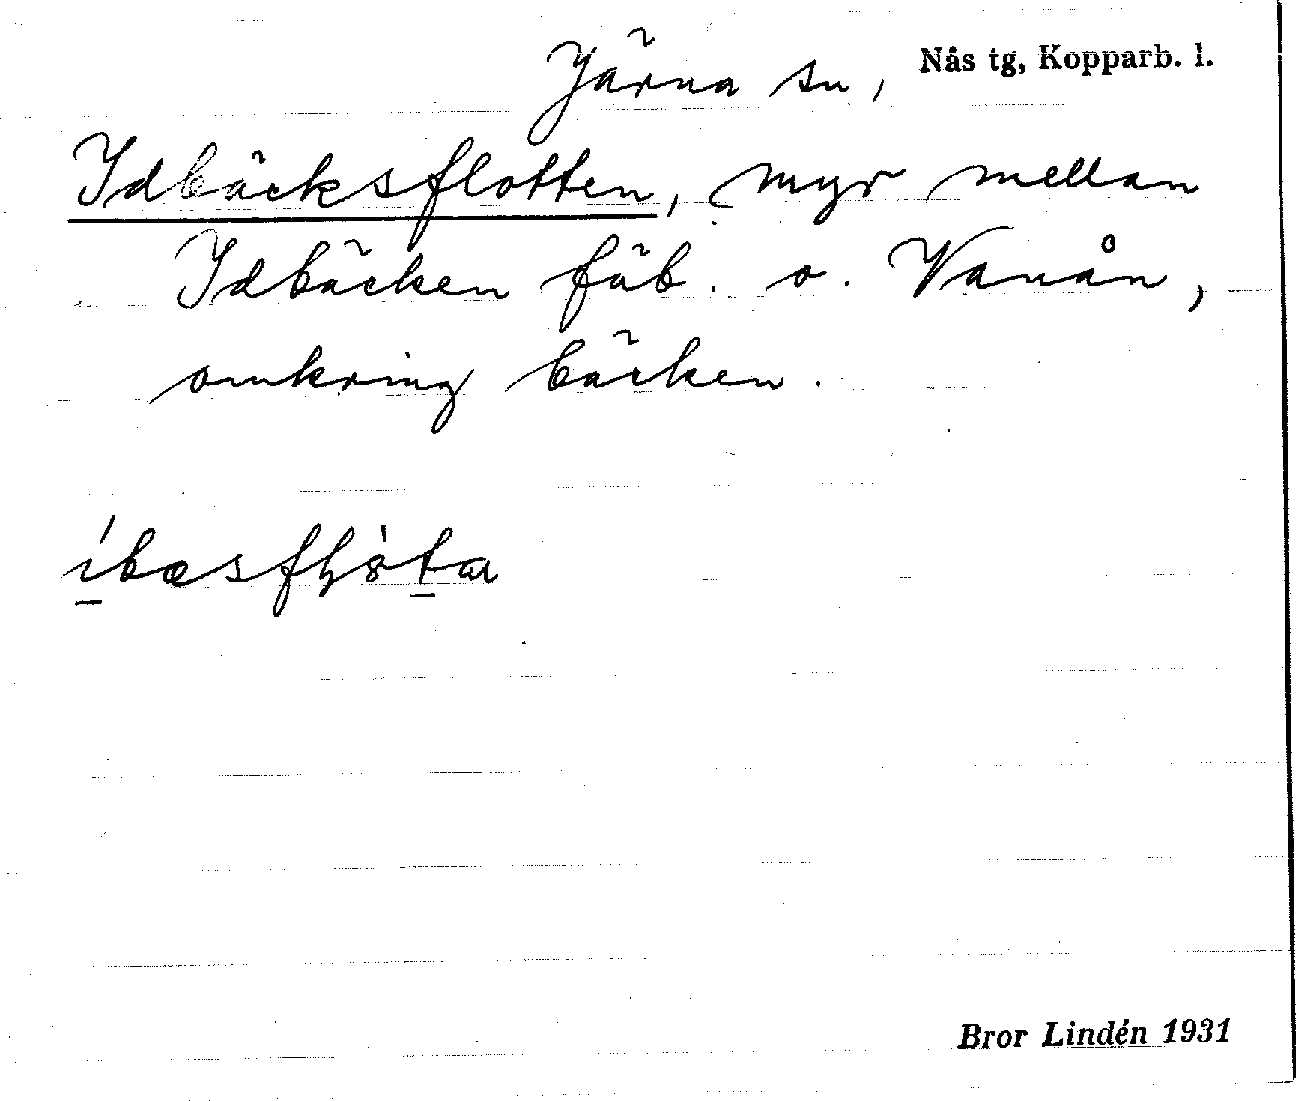 Järna sn, Nås tg, Kopparb. l.
Idbäcksflotten, myr mellan
Idbäcken fäb. o. Vanån,
omkring bäcken.
Bror Lindén 1931